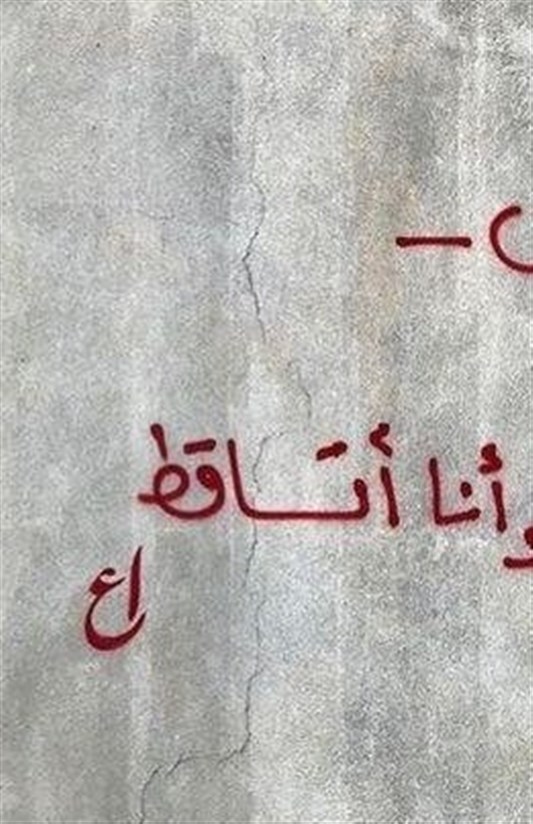 وأنا أتساقط
اع